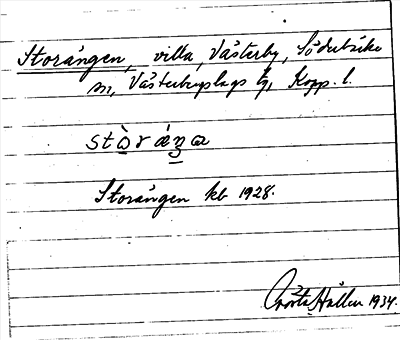 Storängen, villa, Västerby, Söderbärke
sn, Västerbergslags tg, Kopp. l.
stò̱r áŋ̱a
Storängen kb 1928.
Gösta Hallén 1934.